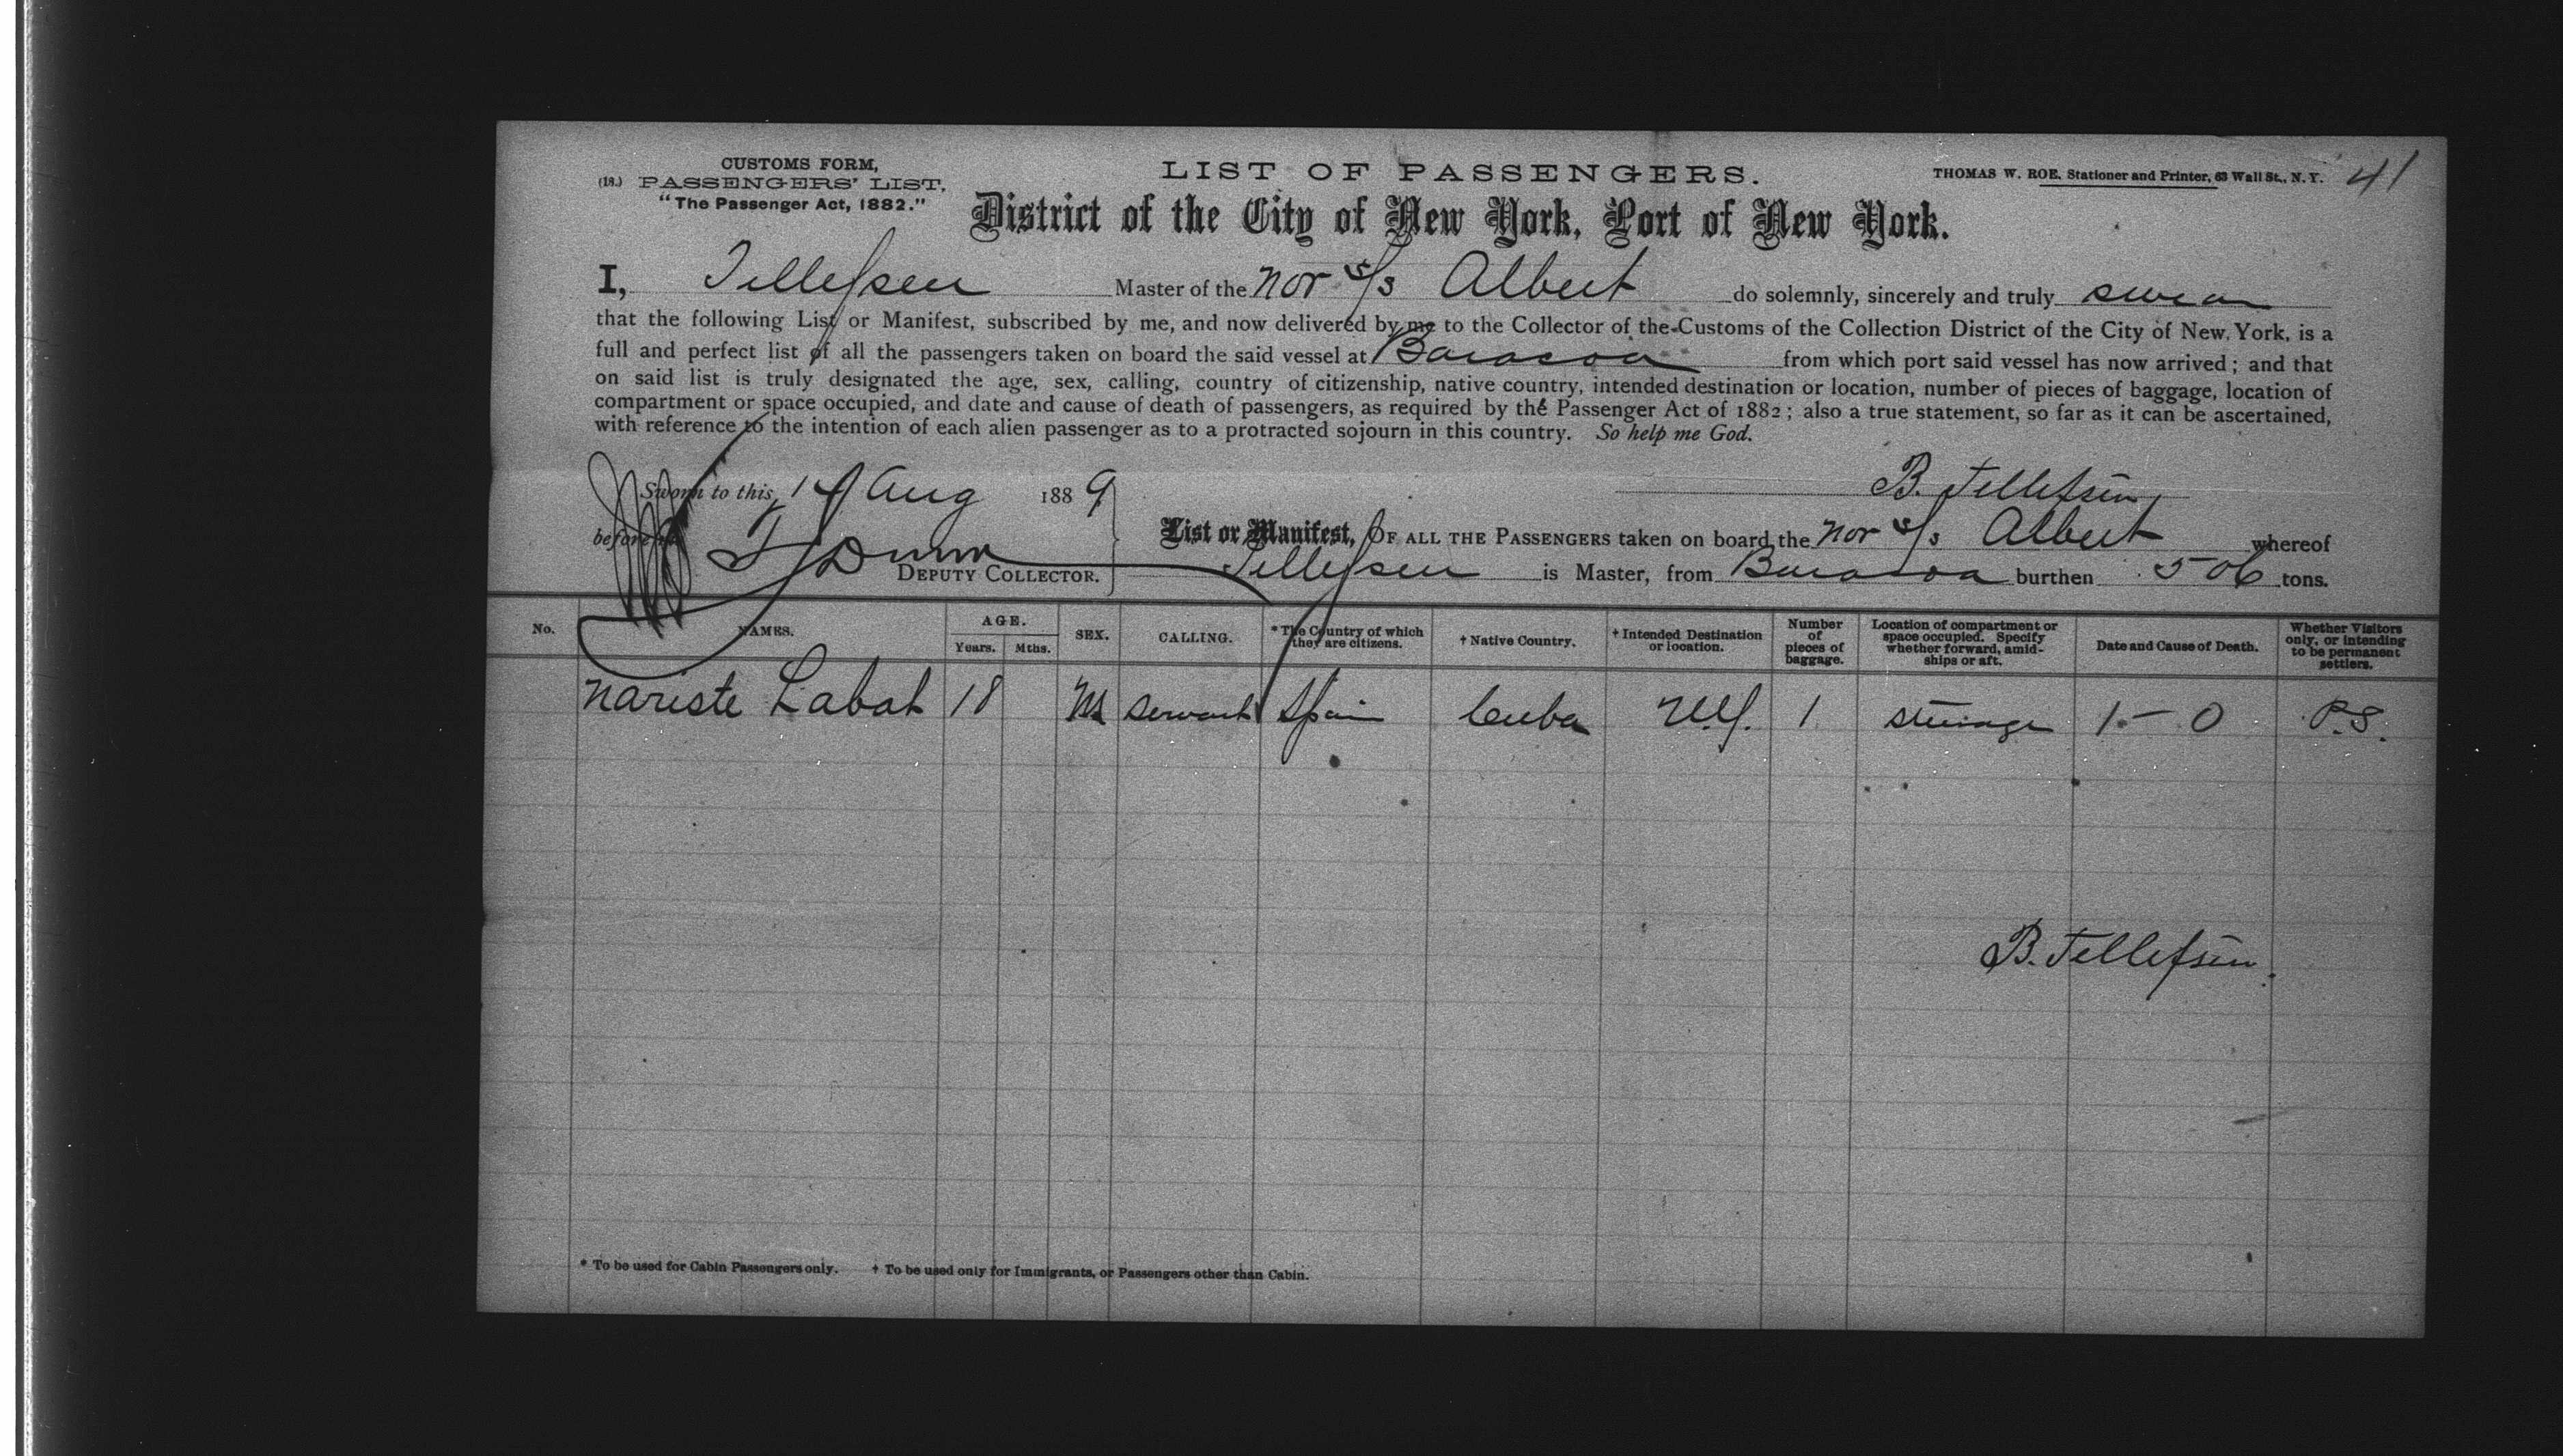 CUSTOMS FORM,
(18.) PASSENGERS' LIST.
"The Passenger Act, 1882."
LIST OF PASSENGERS.
THOMAS W. ROE, Stationer and Printer, 63 Wall St., N.Y.
41
District of the City of New York, Port of New York.
I, Tellefsen Master of the Nor s/s Albert do solemnly, sincerely and truly swear
that the following List or Manifest, subscribed by me, and now delivered by me to the Collector of the Customs of the Collection District of the City of New York, is a
full and perfect list of all the passengers taken on board the said vessel at Baracoa from which port said vessel has now arrived; and that
on said list is truly designated the age, sex, calling, country of citizenship, native country, intended destination or location, number of pieces of baggage, location of
compartment or space occupied, and date and cause of death of passengers, as required by the Passenger Act of 1882; also a true statement, so far as it can be ascertained,
with reference to the intention of each alien passenger as to a protracted sojourn in this country. So help me God.
B. Tellefsen
Sworn to this 14 Aug 1889
before me
Dunn
DEPUTY COLLECTOR.
List or Manifest, OF ALL THE PASSENGERS taken on board the Nor s/s Albert whereof
Tellefsen is Master, from Baracoa burthen 506 tons.
No. NAMES. AGE. Years. Mths. SEX. CALLING. * The Country of which they are citizens. † Native Country. † Intended Destination or location. Number of pieces of baggage. Location of compartment or space occupied. Specify whether forward, amidships or aft. Date and Cause of Death. Whether Visitors only, or intending to be permanent settlers.
Nariste Labat 18 M servant Spain Cuba N.Y. 1 steerage 1 - 0 P.S.
B. Tellefsen.
* To be used for Cabin Passengers only. † To be used only for Immigrants, or Passengers other than Cabin.